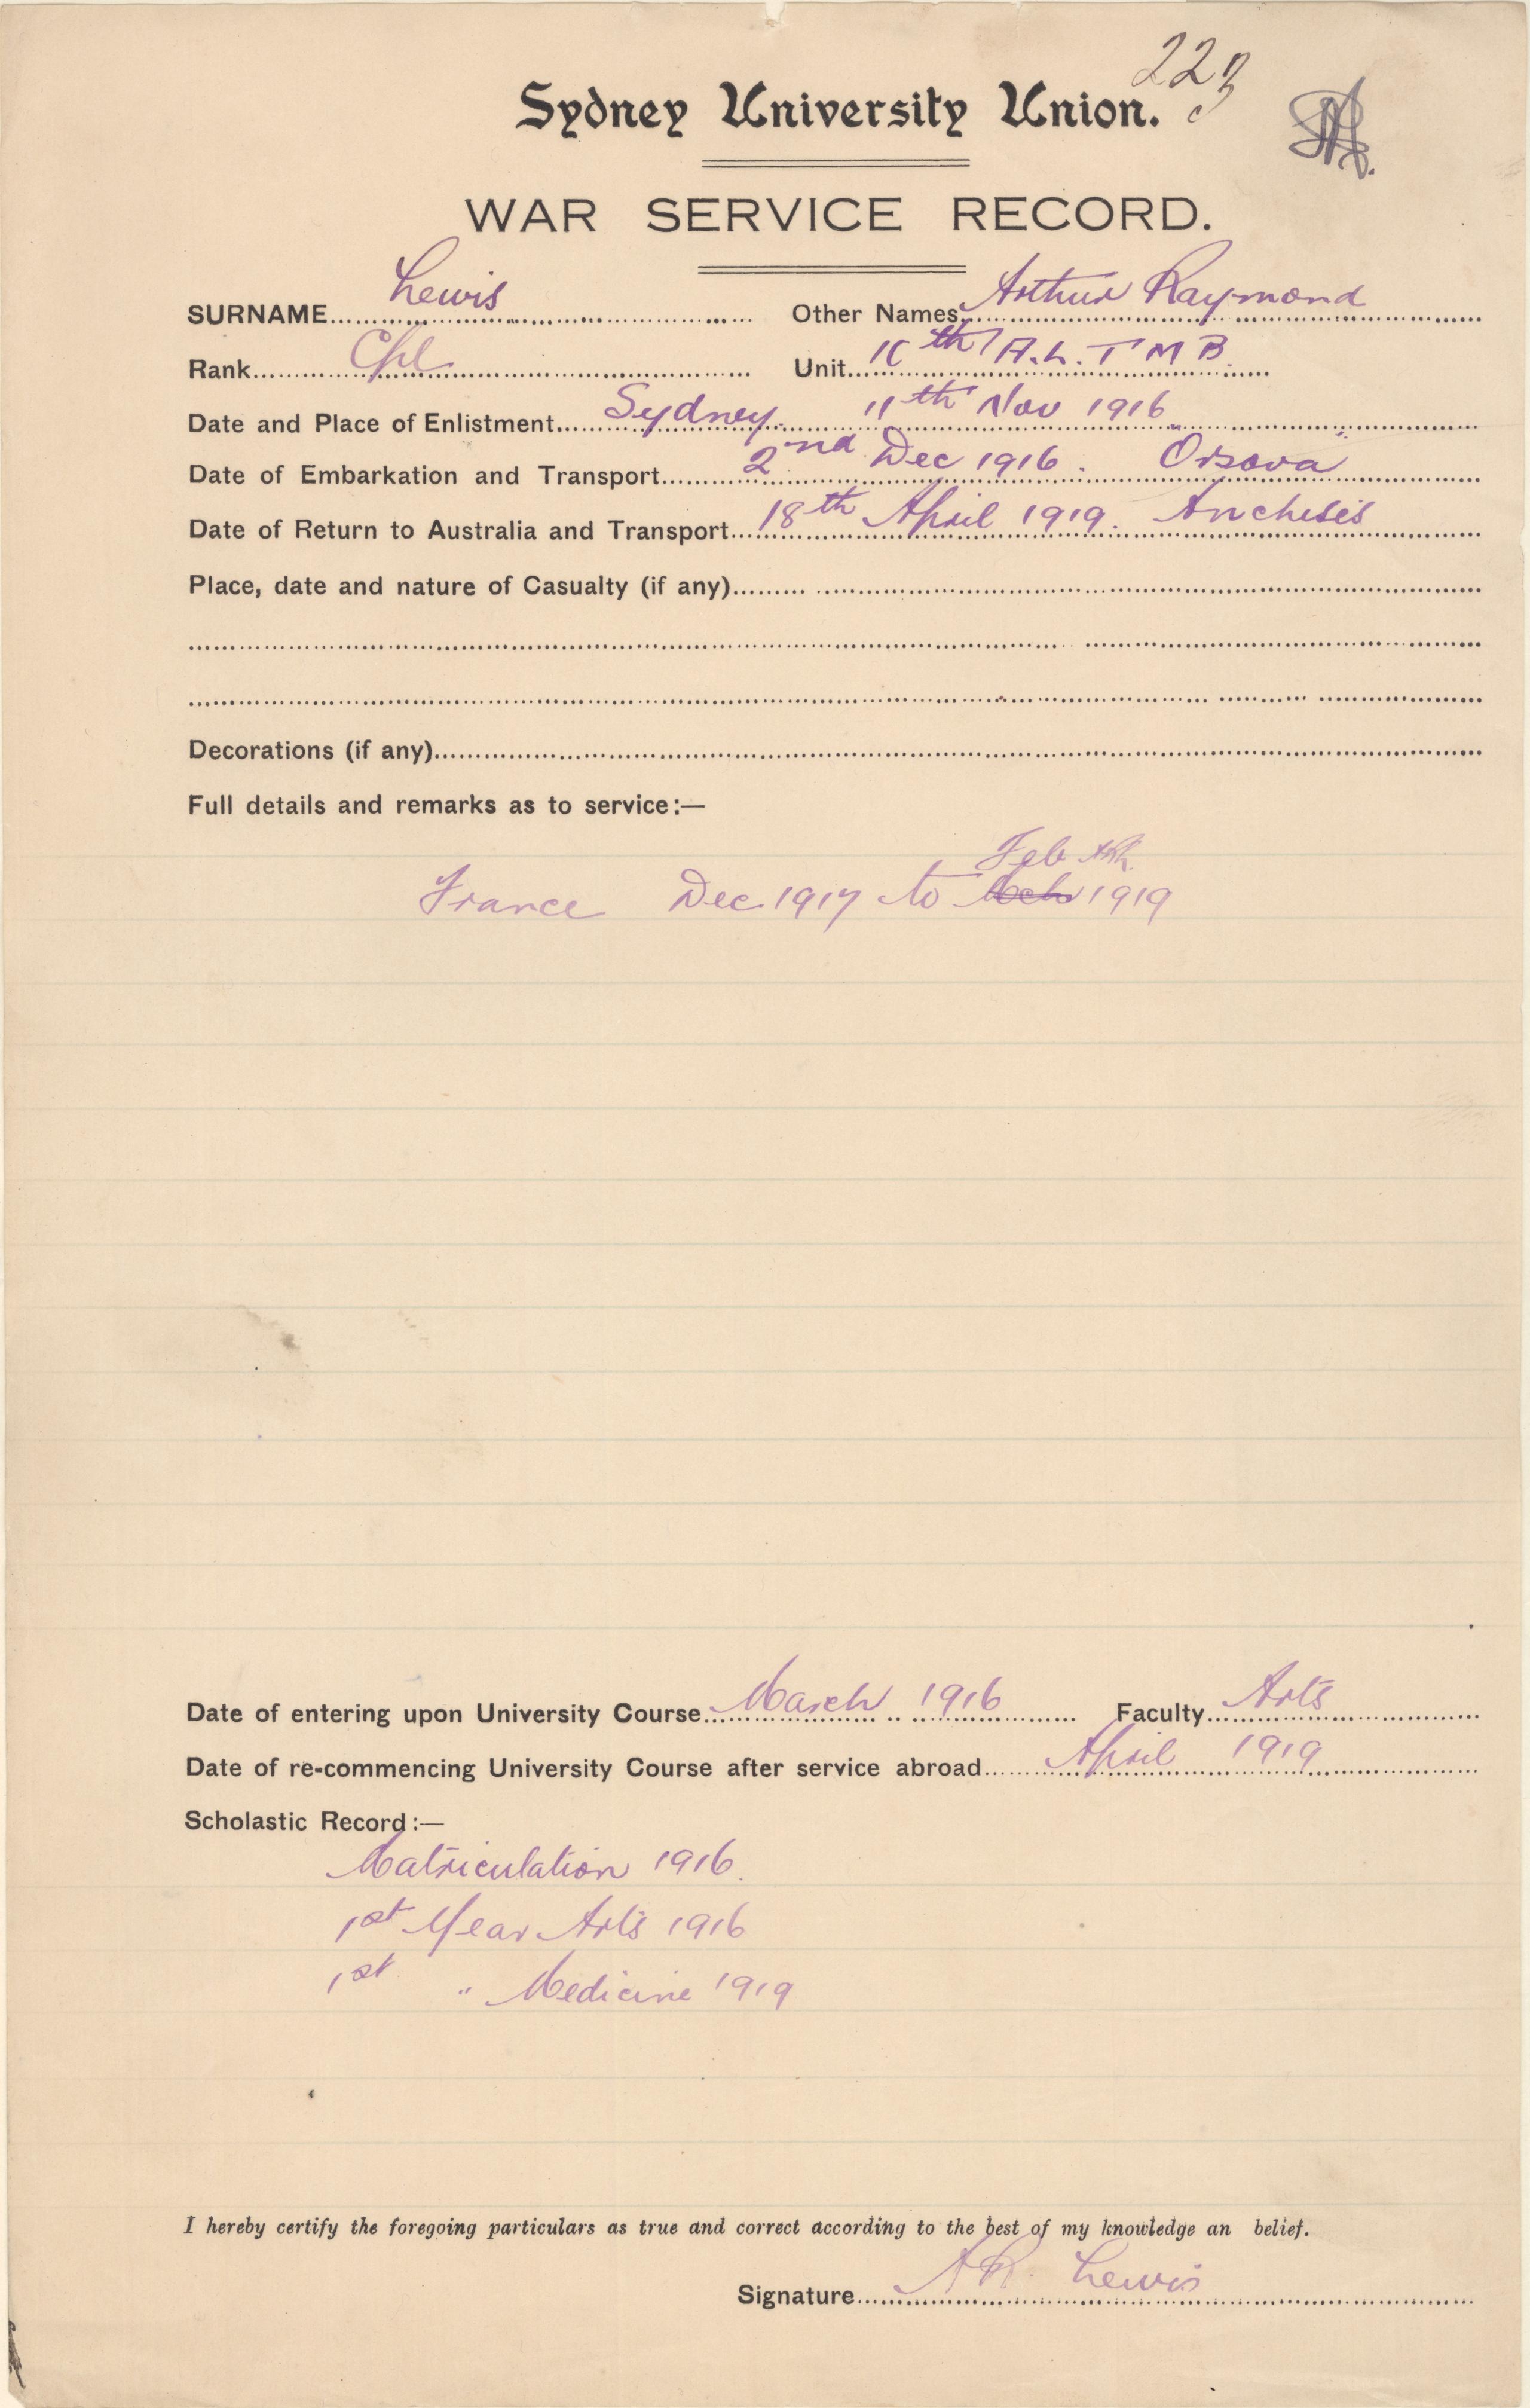 223
Sydney University Union.
WAR SERVICE RECORD.
SURNAME Lewis Other Names Arthur Raymond
Rank Cpl Unit 10th A.L.T.M.B.
Date and Place of Enlistment Sydney. 11th Nov 1916
Date of Embarkation and Transport 2nd Dec 1916. "Orsova"
Date of Return to Australia and Transport 18th April 1919. Anchises
Place, date and nature of Casualty (if any)
Decorations (if any)
Full details and remarks as to service:—
Feb
France Dec 1917 to 1919
Date of entering upon University Course March 1916 Faculty Arts
Date of re-commencing University Course after service abroad April 1919
Scholastic Record:—
Matriculation 1916.
1st Year Arts 1916
1st " Medicine 1919
I hereby certify the foregoing particulars as true and correct according to the best of my knowledge an belief.
Signature A R Lewis